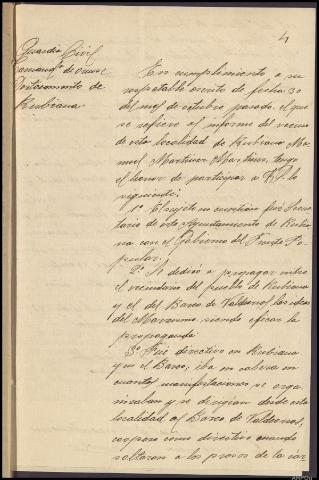 4
Guardia Civil
Comandª de Orense
Destacamento de
Rubiana
En cumplimiento a su
respetable escrito de fecha 30
del mes de octubre pasado, el que
se refiere al informe del vecino
de esta localidad de Rubiana Ma-
nuel Martinez Martinez, tengo
el honor de participar a V.S. lo
siguiente:
1º El sujeto en cuestión fué Secre-
tario de este Ayuntamiento de Rubia-
na con el Gobierno del Frente Po-
pular.
2º Se dedicó a propagar entre
el vecindario del pueblo de Rubiana
y el del Barco de Valdeorras, las ideas
del Marxismo siendo eficaz la
propaganda.
3º Fué directivo en Rubiana
y en el Barco, iba en cabeza en
cuantas manifestaciones se orga-
nizaban y se dirigian desde esta
localidad al Barco de Valdeorras,
cooperó como directivo cuando
soltaron a los presos de la car